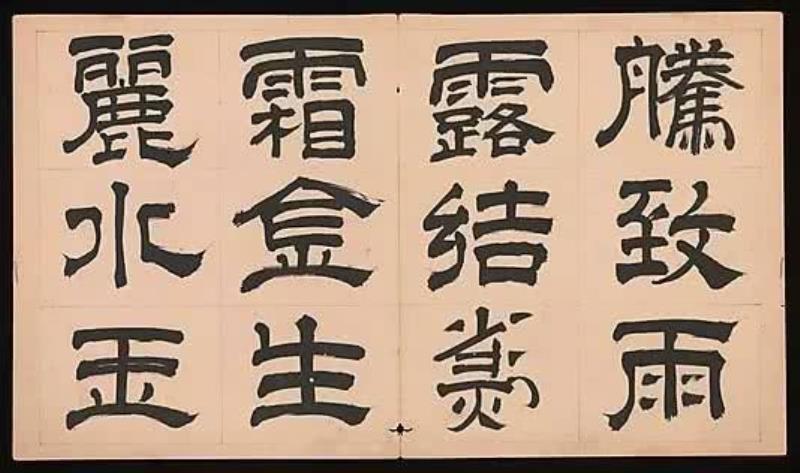 騰致雨
露結為
霜金生
麗水玉